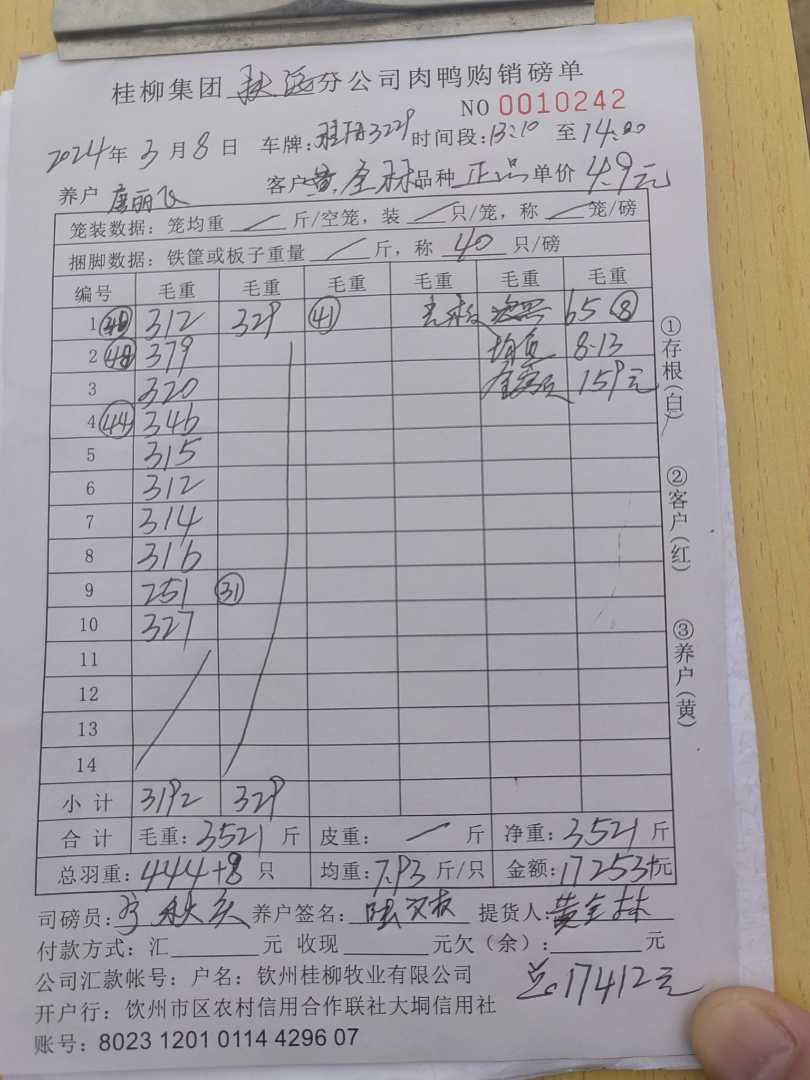 桂柳集团 分公司肉鸭购销磅单
NO 0010242
2024年3月8日 车牌: 3229 时间段:13:10 至14:00
养户 唐丽飞 客户黄金林品种正品单价4.9元
笼装数据：笼均重 / 斤/空笼，装 / 只/笼，称 / 笼/磅
捆脚数据：铁筐或板子重量 / 斤，称 40 只/磅
编号 毛重 毛重 毛重 毛重 毛重 毛重
1 312 329 41 65 8
2 379 均重 8.13
3 320 159元
4 44 346
5 315
6 312
7 314
8 316
9 251 31
10 327
11
12
13
14
小计 3192 329
合计 毛重:3521斤 皮重: / 斤 净重:3521斤
总羽重:444+8只 均重:7.93斤/只 金额:17253元
司磅员: 养户签名: 提货人:黄金林
付款方式:汇 元 收现 元欠（余）: 元
公司汇款帐号：户名：钦州桂柳牧业有限公司
总:17412元
开户行：钦州市区农村信用合作联社大垌信用社
账号：8023 1201 0114 4296 07
①存根(白)
②客户(红)
③养户(黄)